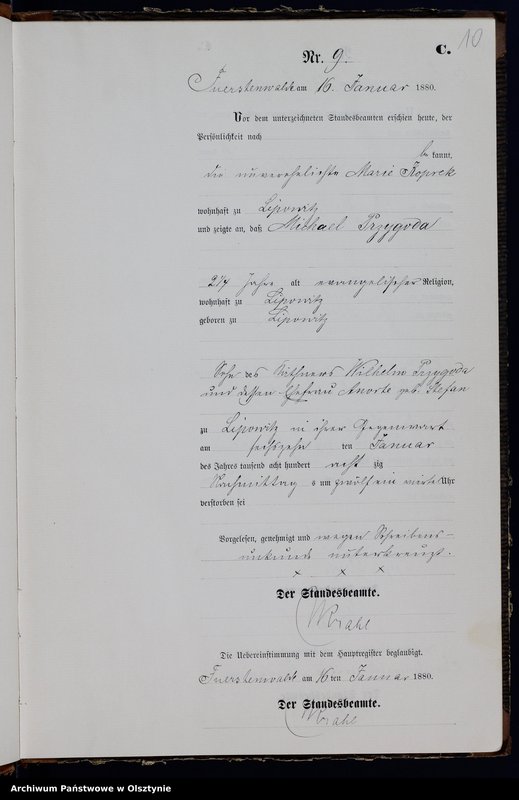 10
C.
Nr. 9.
Fuerstenwalde am 16. Januar 1880.
Vor dem unterzeichneten Standesbeamten erschien heute, der
Persönlichkeit nach
be kannt,
die unverehelichte Marie Koprek
wohnhaft zu Lipowitz
und zeigte an, daß Michael Przygoda
2 1/4 Jahre alt evangelischer Religion,
wohnhaft zu Lipowitz
geboren zu Lipowitz
Sohn des Käthners Wilhelm Przygoda
und dessen Ehefrau Anorte geb. Stefan
zu Lipowitz in ihrer Gegenwart
am sechszehn ten Januar
des Jahres tausend acht hundert acht zig
Nachmittag s um zwölf ein viertel Uhr
verstorben sei
Vorgelesen, genehmigt und wegen Schreibens-
unkunde unterkreuzt.
x x x
Der Standesbeamte.
Krahl
Die Uebereinstimmung mit dem Hauptregister beglaubigt.
Fuerstenwalde am 16ten Januar 1880.
Der Standesbeamte.
Krahl
Archiwum Państwowe w Olsztynie